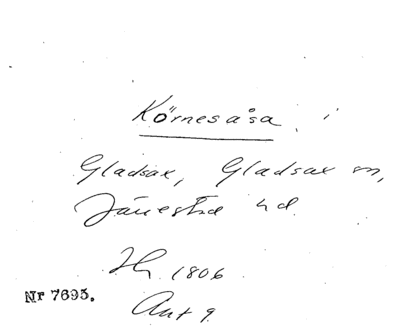 Körnesåsa i
Gladsax, Gladsax sn,
Järrestad hd.
Hr 1806
Nr 7695.
Akt 9.